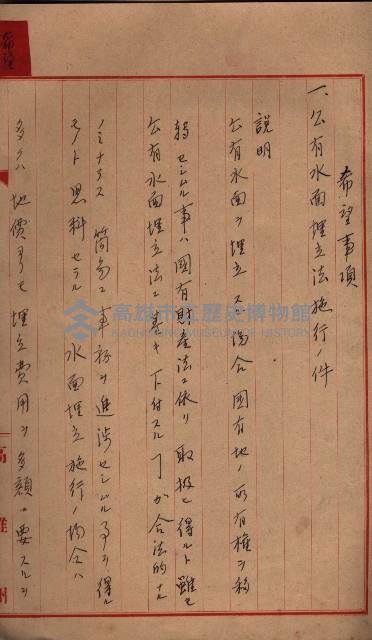 希望
希望事項
一、公有水面埋立法施行ノ件
説明
公有水面ヲ埋立スル場合国有地ノ所有権ヲ移
轉セシムル事ハ国有財産法ニ依リ取扱ヒ得ルト雖モ
公有水面埋立法ニ基キ下付スルヿガ合法的ナル
ノミナラス簡易ニ事務ヲ進渉セシムル事ヲ得ル
モノト思料セラル水面埋立施行ノ場合ハ
多クハ地價ヨリモ埋立費用ヲ多額ニ要スルヲ
高雄州
高雄市立歷史博物館
KAOHSIUNG MUSEUM OF HISTORY